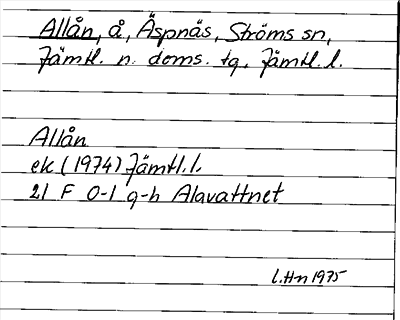 Allån, å, Äspnäs, Ströms sn,
Jämtl. n. doms. tg, Jämtl. l.
Allån
ek (1974) Jämtl. l.
21 F 0-1 g-h Alavattnet
l.Hn 1975